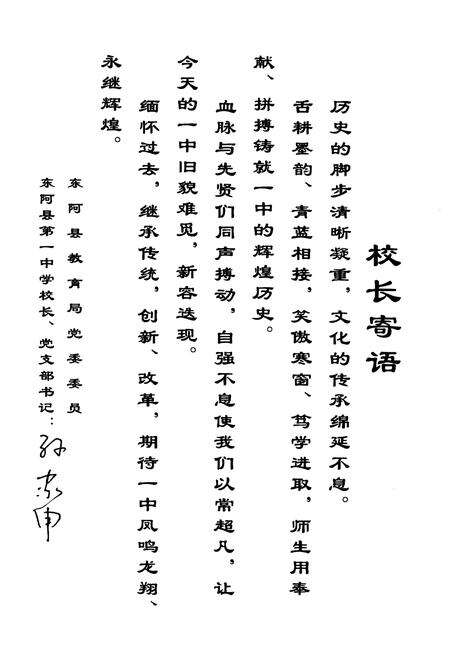 校长寄语
历史的脚步清晰凝重，文化的传承绵延不息。
舌耕墨韵、青蓝相接，笑傲寒窗、笃学进取，师生用奉
献、拼搏铸就一中的辉煌历史。
血脉与先贤们同声搏动，自强不息使我们以常超凡，让
今天的一中旧貌难觅，新容迭现。
缅怀过去，继承传统，创新、改革，期待一中凤鸣龙翔、
永继辉煌。
东阿县教育局党委委员
东阿县第一中学校长、党支部书记：